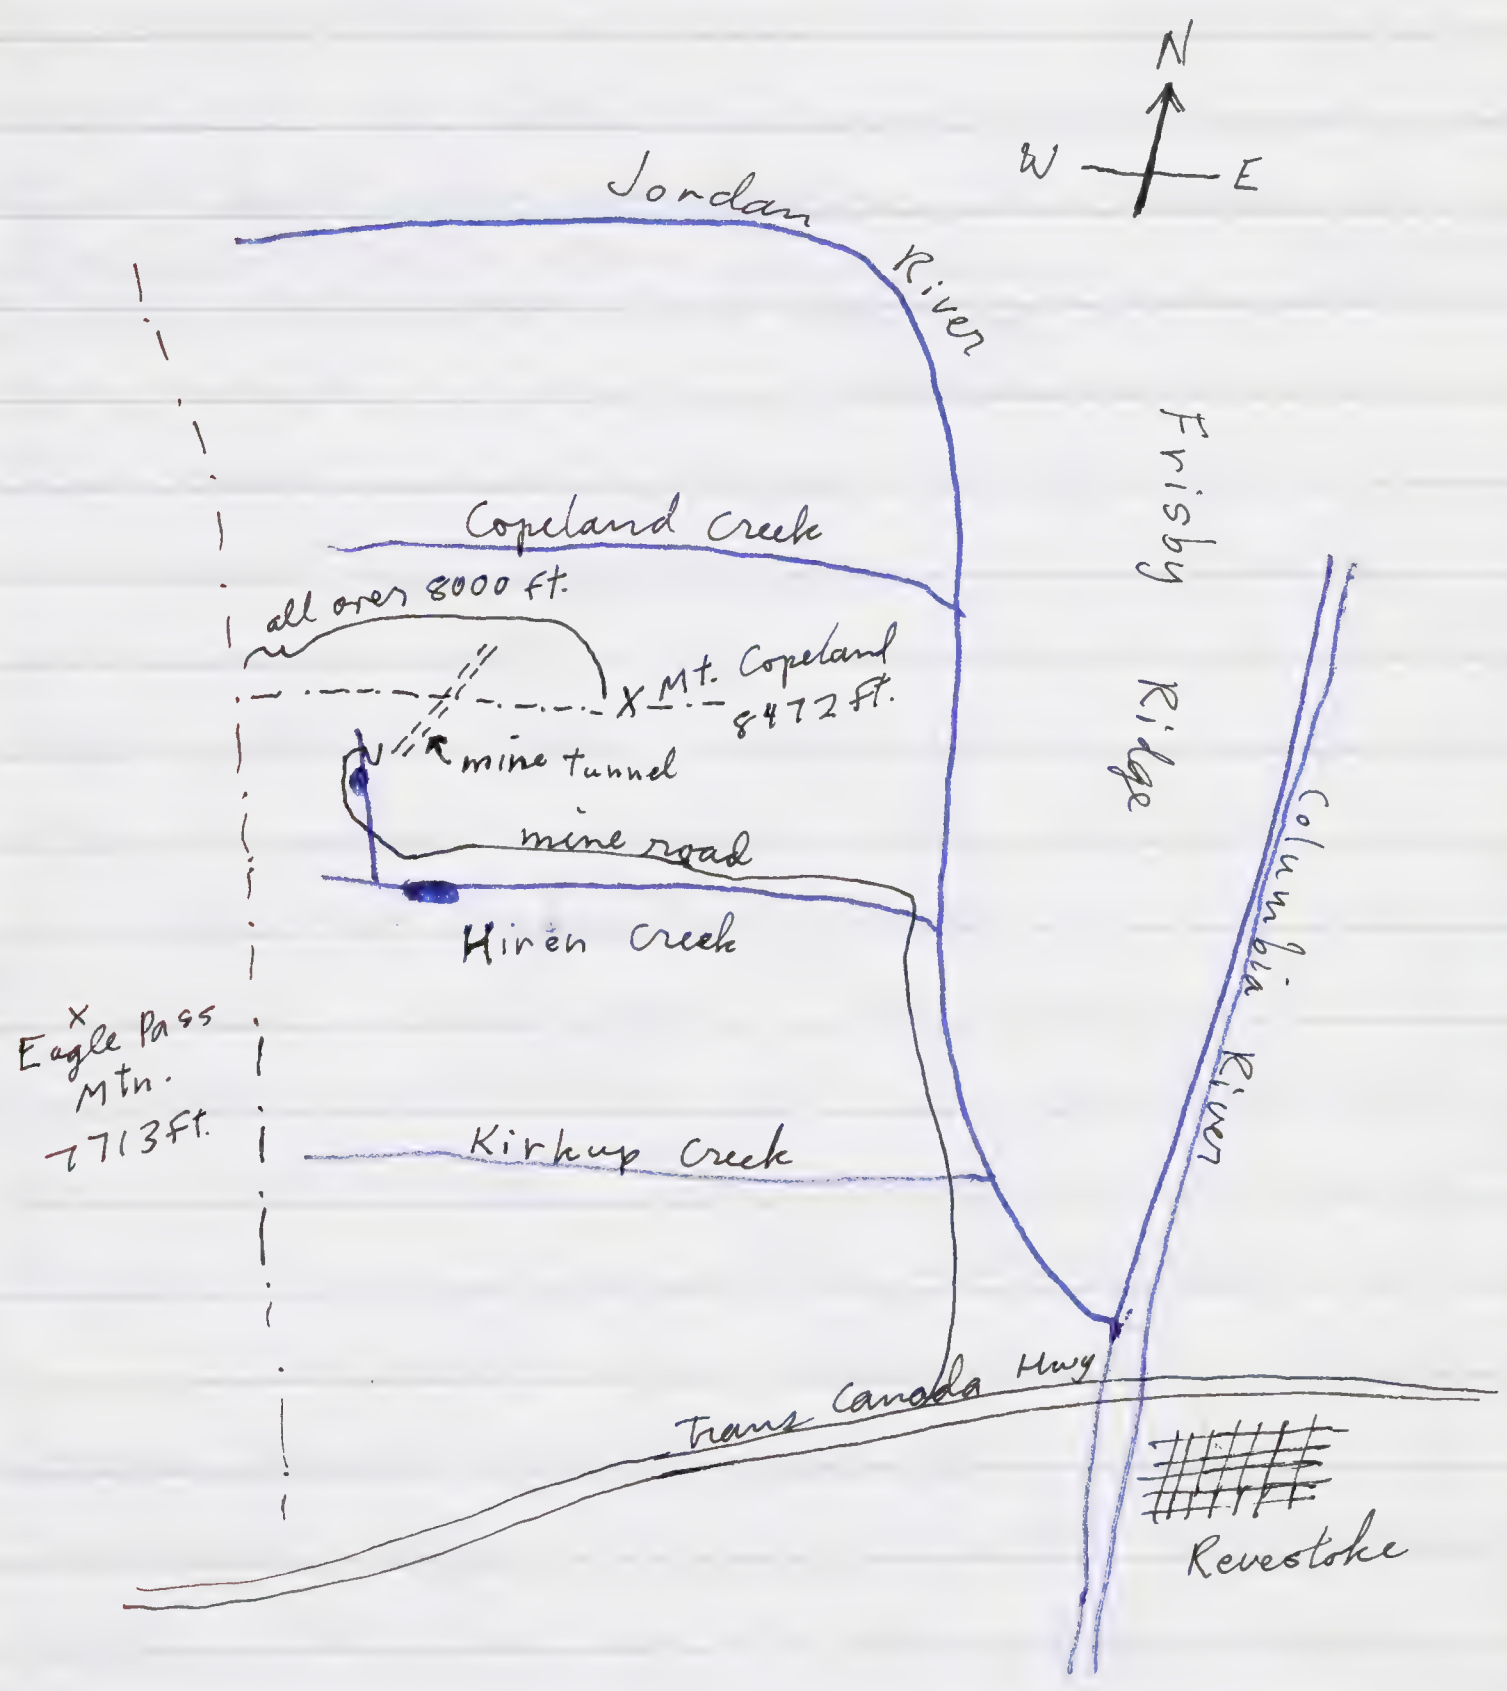 N
W E
Jordan
River
Frisby
Ridge
Copeland Creek
all over 8000 ft.
X Mt. Copeland
8472 ft.
mine tunnel
mine road
Hiren Creek
Columbia River
X
Eagle Pass
Mtn.
7713 ft.
Kirkup Creek
Trans Canada Hwy
Revestoke